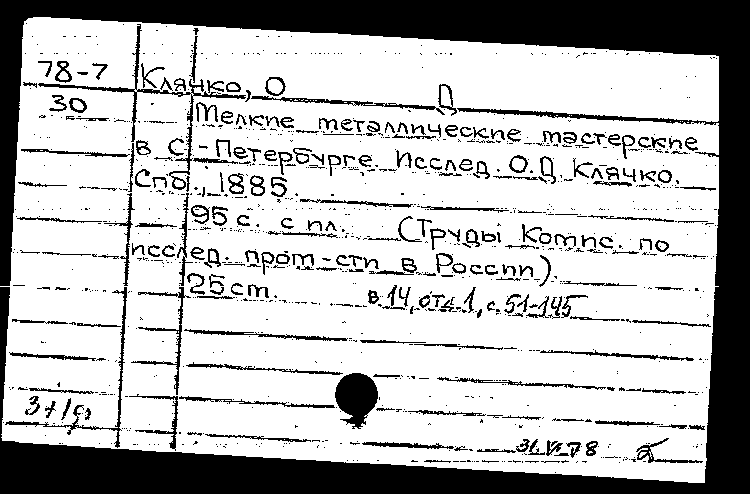 78-7 Клячко, О Д
30 Мелкие металлические мастерские
в С-Петербурге. Исслед. О.Д Клячко.
Спб., 1885.
95 с. с пл. (Труды Комис. по
исслед. пром-сти в России).
25 см. в 14, отд. 1, с. 51-145
3+1
31.VI.78